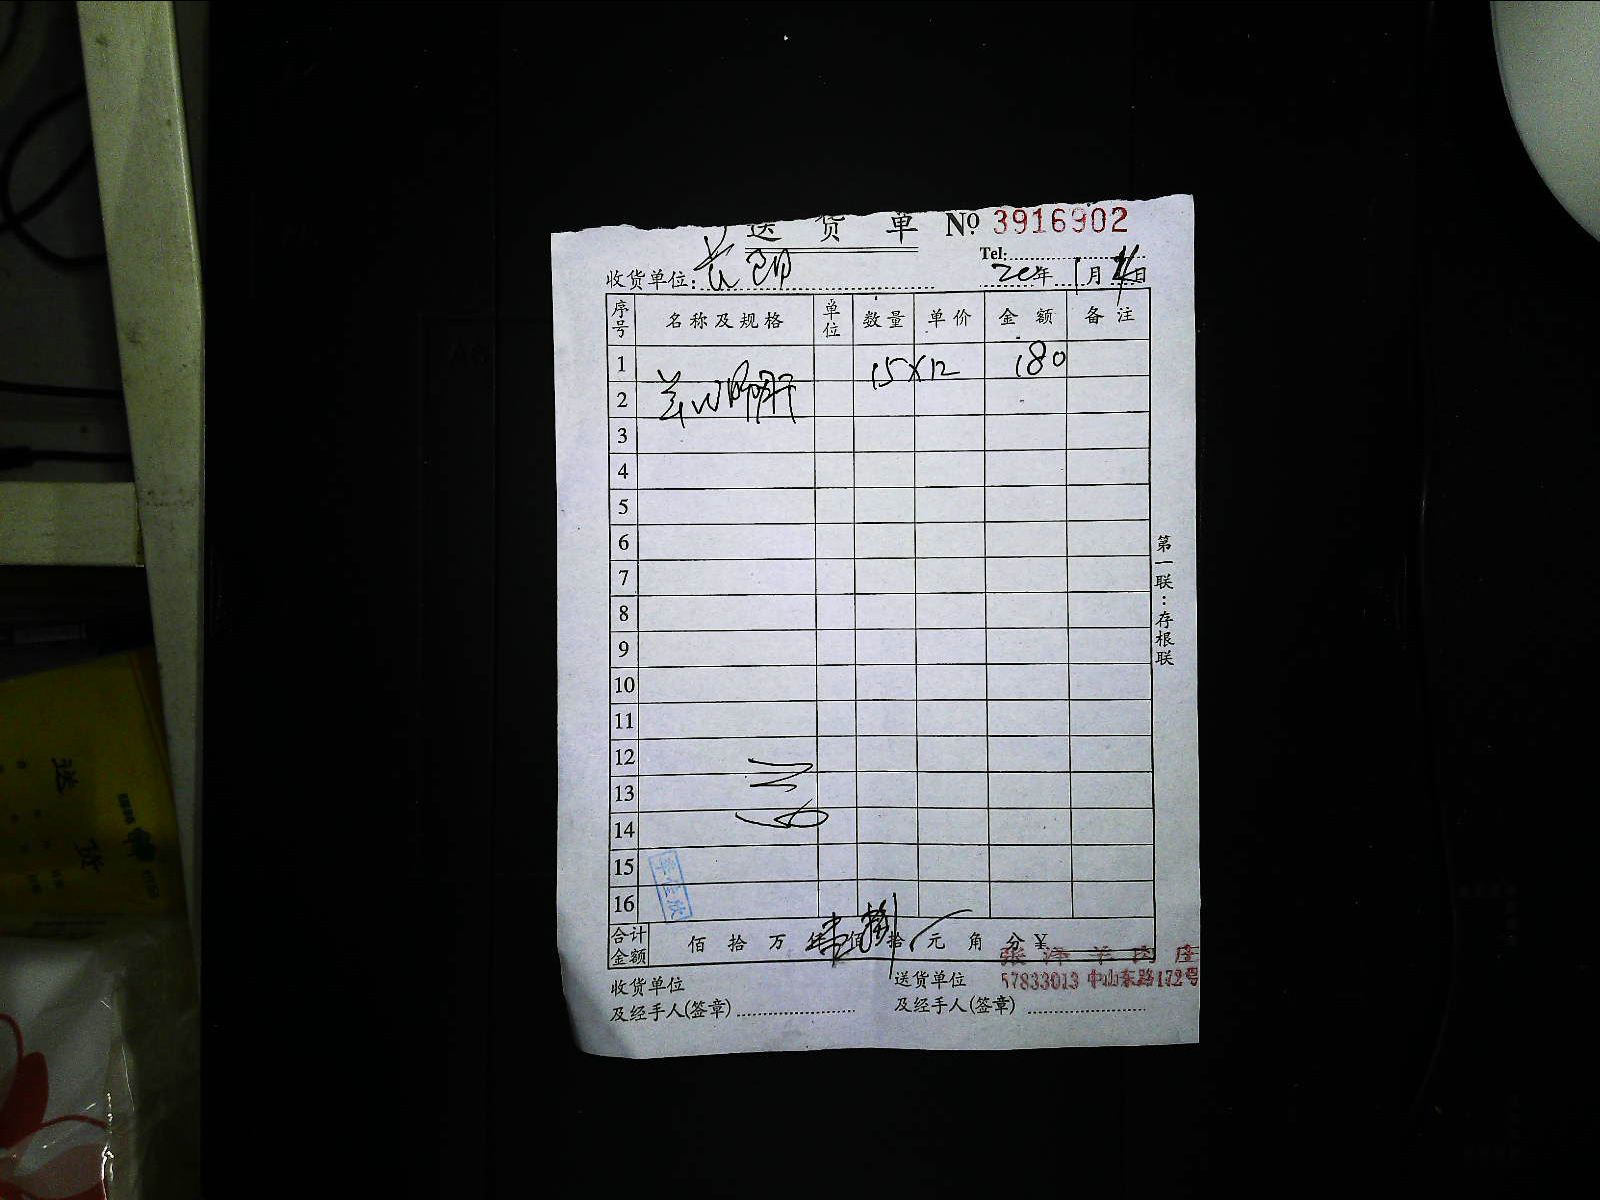 送 货 单 № 3916902
Tel:
收货单位: 20年 1月 日
序号 名称及规格 单位 数量 单价 金额 备注
1 15×12 180
2 羊心肺肝
3
4
5
6
7
8
9
10
11
12
13
14
15
16
合计金额 佰 拾 万 仟 佰 拾 元 角 分 ¥
张泽羊肉庄
57833013 中山东路172号
收货单位 送货单位
及经手人(签章) 及经手人(签章)
第一联:存根联
送 货